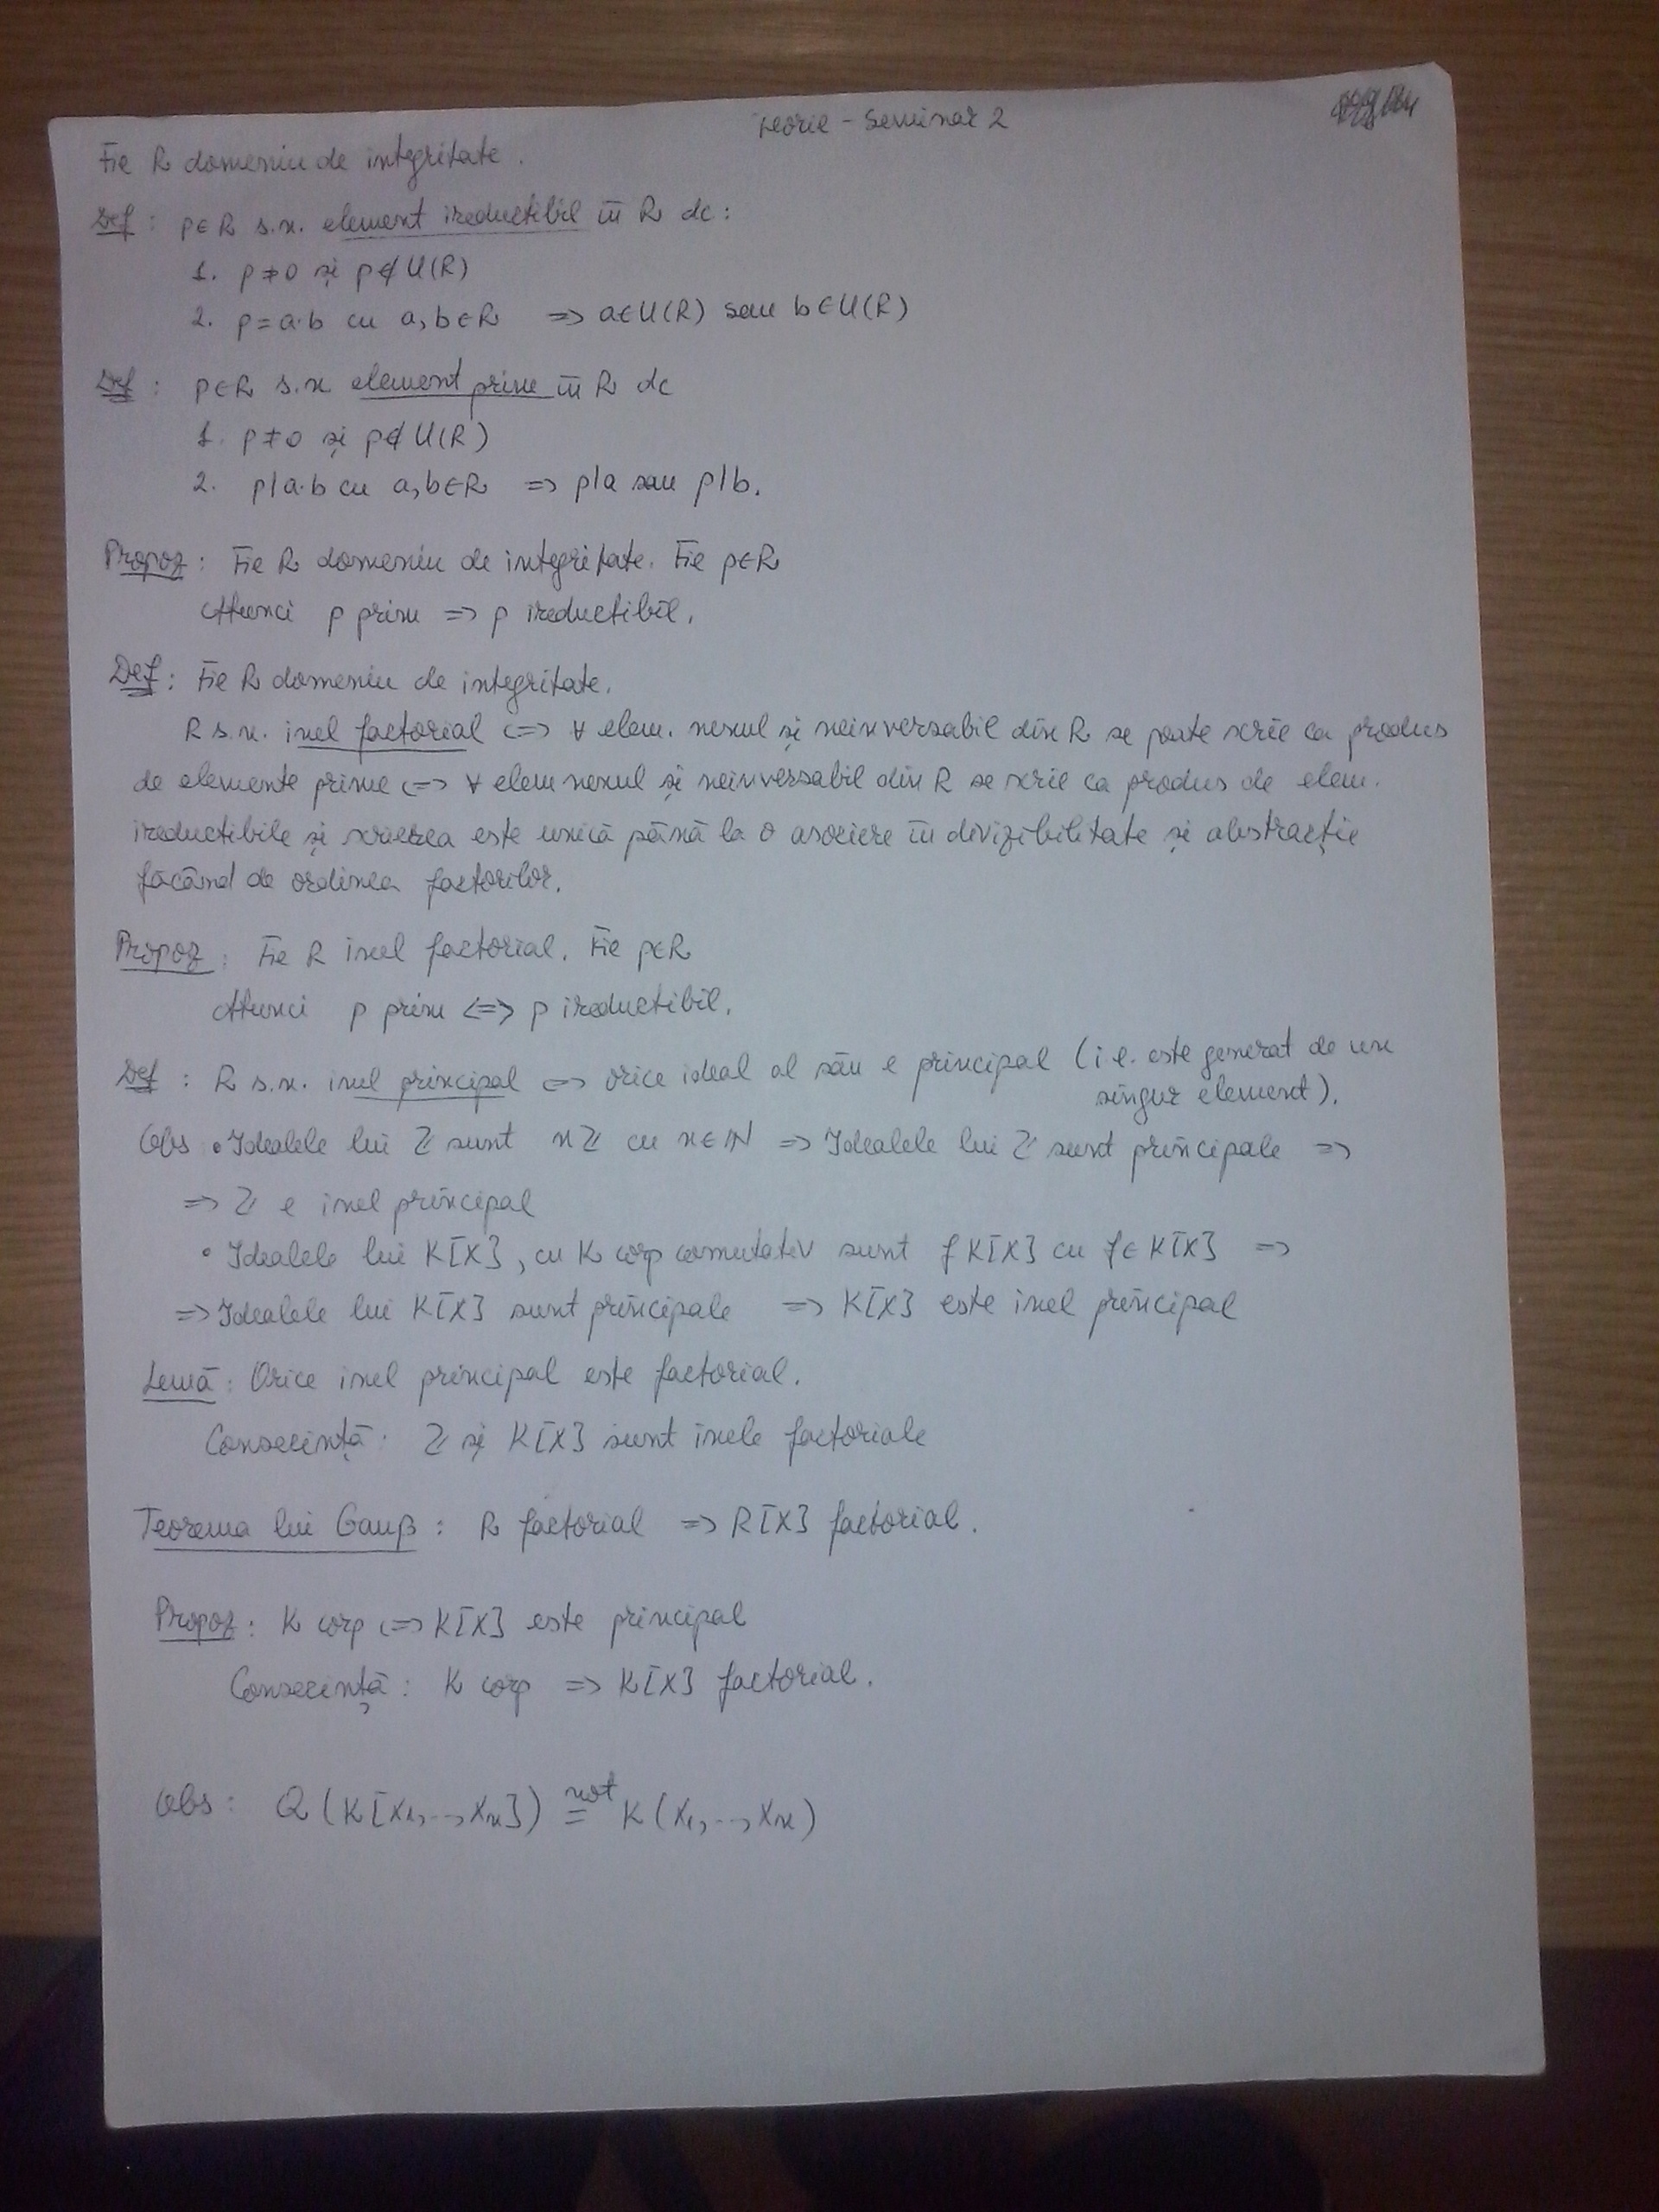 Teorie - Seminar 2
Fie R domeniu de integritate.
Def: p∈R s.n. element ireductibil în R dc:
1. p≠0 și p∉U(R)
2. p=a·b cu a,b∈R => a∈U(R) sau b∈U(R)
Def: p∈R s.n. element prim în R dc
1. p≠0 și p∉U(R)
2. p|a·b cu a,b∈R => p|a sau p|b.
Propoz: Fie R domeniu de integritate. Fie p∈R
Atunci p prim => p ireductibil.
Def: Fie R domeniu de integritate.
R s.n. inel factorial <=> ∀ elem. nenul și neinversabil din R se poate scrie ca produs
de elemente prime <=> ∀ elem nenul și neinversabil din R se scrie ca produs de elem.
ireductibile și scrierea este unică până la o asociere în divizibilitate și abstracție
făcând de ordinea factorilor.
Propoz: Fie R inel factorial. Fie p∈R
Atunci p prim <=> p ireductibil.
Def: R s.n. inel principal <=> orice ideal al său e principal (i.e. este generat de un
singur element).
Obs • Idealele lui ℤ sunt nℤ cu n∈ℕ => Idealele lui ℤ sunt principale =>
=> ℤ e inel principal
• Idealele lui K[X], cu K corp comutativ sunt fK[X] cu f∈K[X] =>
=> Idealele lui K[X] sunt principale => K[X] este inel principal
Lemă: Orice inel principal este factorial.
Consecință: ℤ și K[X] sunt inele factoriale
Teorema lui Gauß: R factorial => R[X] factorial.
Propoz: K corp <=> K[X] este principal
Consecință: K corp => K[X] factorial.
Obs: Q(K[X₁,..,Xₙ]) not= K(X₁,..,Xₙ)